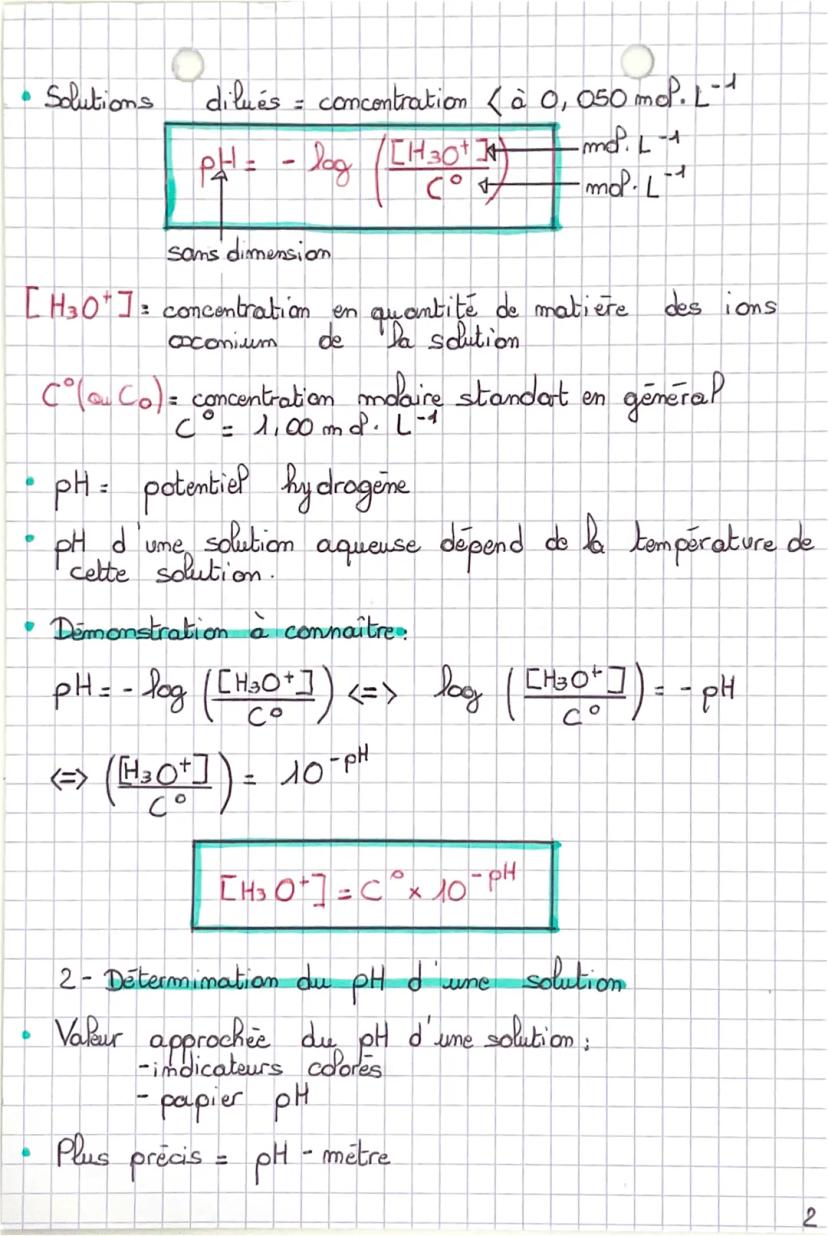 • Solutions dilués = concentration < à 0,050 mol.L⁻¹
pH = - log ([H3O⁺]/C°) mol.L⁻¹
mol.L⁻¹
sans dimension
[H3O⁺] = concentration en quantité de matière des ions
oxonium de la solution
C° (ou C0) = concentration molaire standart en général
C° = 1,00 mol.L⁻¹
• pH = potentiel hydrogène
• pH d'une solution aqueuse dépend de la température de
cette solution.
• Démonstration à connaître:
pH = - log ([H3O⁺]/C°) <=> log ([H3O⁺]/C°) = - pH
<=> ([H3O⁺]/C°) = 10⁻ᵖᴴ
[H3O⁺] = C° × 10⁻ᵖᴴ
2 - Détermination du pH d'une solution
• Valeur approchée du pH d'une solution :
- indicateurs colorés
- papier pH
• Plus précis = pH - mètre
2